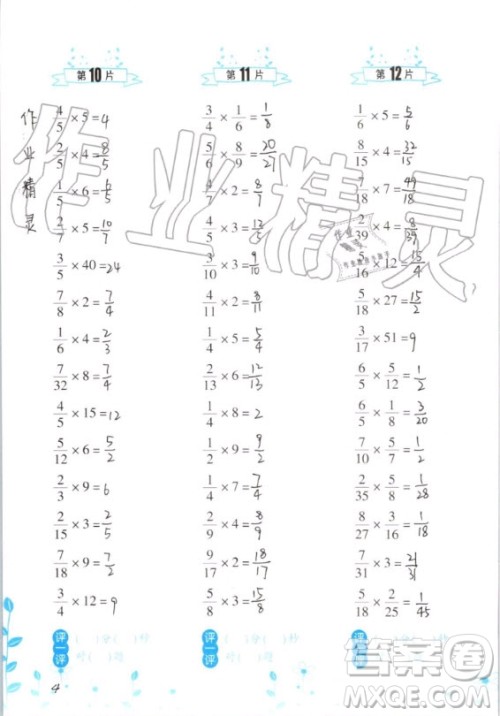 第10片
4/5 × 5 = 4
2/5 × 4 = 8/5
1/5 × 6 = 6/5
2/7 × 5 = 10/7
3/5 × 40 = 24
7/8 × 2 = 7/4
1/6 × 4 = 2/3
7/32 × 8 = 7/4
4/5 × 15 = 12
5/12 × 6 = 5/2
2/3 × 9 = 6
2/15 × 3 = 2/5
7/18 × 9 = 7/2
3/4 × 12 = 9
第11片
3/4 × 1/6 = 1/8
5/6 × 8/9 = 20/27
4/7 × 2 = 8/7
× 3 = 13/5
3/10 × 3 = 9/10
4/11 × 2 = 8/11
1/4 × 5 = 5/4
2/13 × 6 = 12/13
1/4 × 8 = 2
1/2 × 9 = 9/2
1/4 × 7 = 7/4
2/9 × 4 = 8/9
9/17 × 2 = 18/17
5/8 × 3 = 15/8
第12片
1/6 × 5 = 5/6
8/15 × 4 = 32/15
7/18 × 7 = 49/18
2/39 × 4 = 8/39
5/16 × 12 = 15/4
5/18 × 27 = 15/2
3/17 × 51 = 9
6/5 × 5/12 = 1/2
6/5 × 1/8 = 3/20
7/10 × 5/7 = 1/2
2/35 × 5/8 = 1/28
2/27 × 3/16 =
7/31 × 3 = 21/31
5/18 × 2/25 = 1/45
作业精灵
作业精灵
评一评 ( )分( )秒
对( )题
评一评 ( )分( )秒
对( )题
评一评
4
答案圈
MXQE.COM